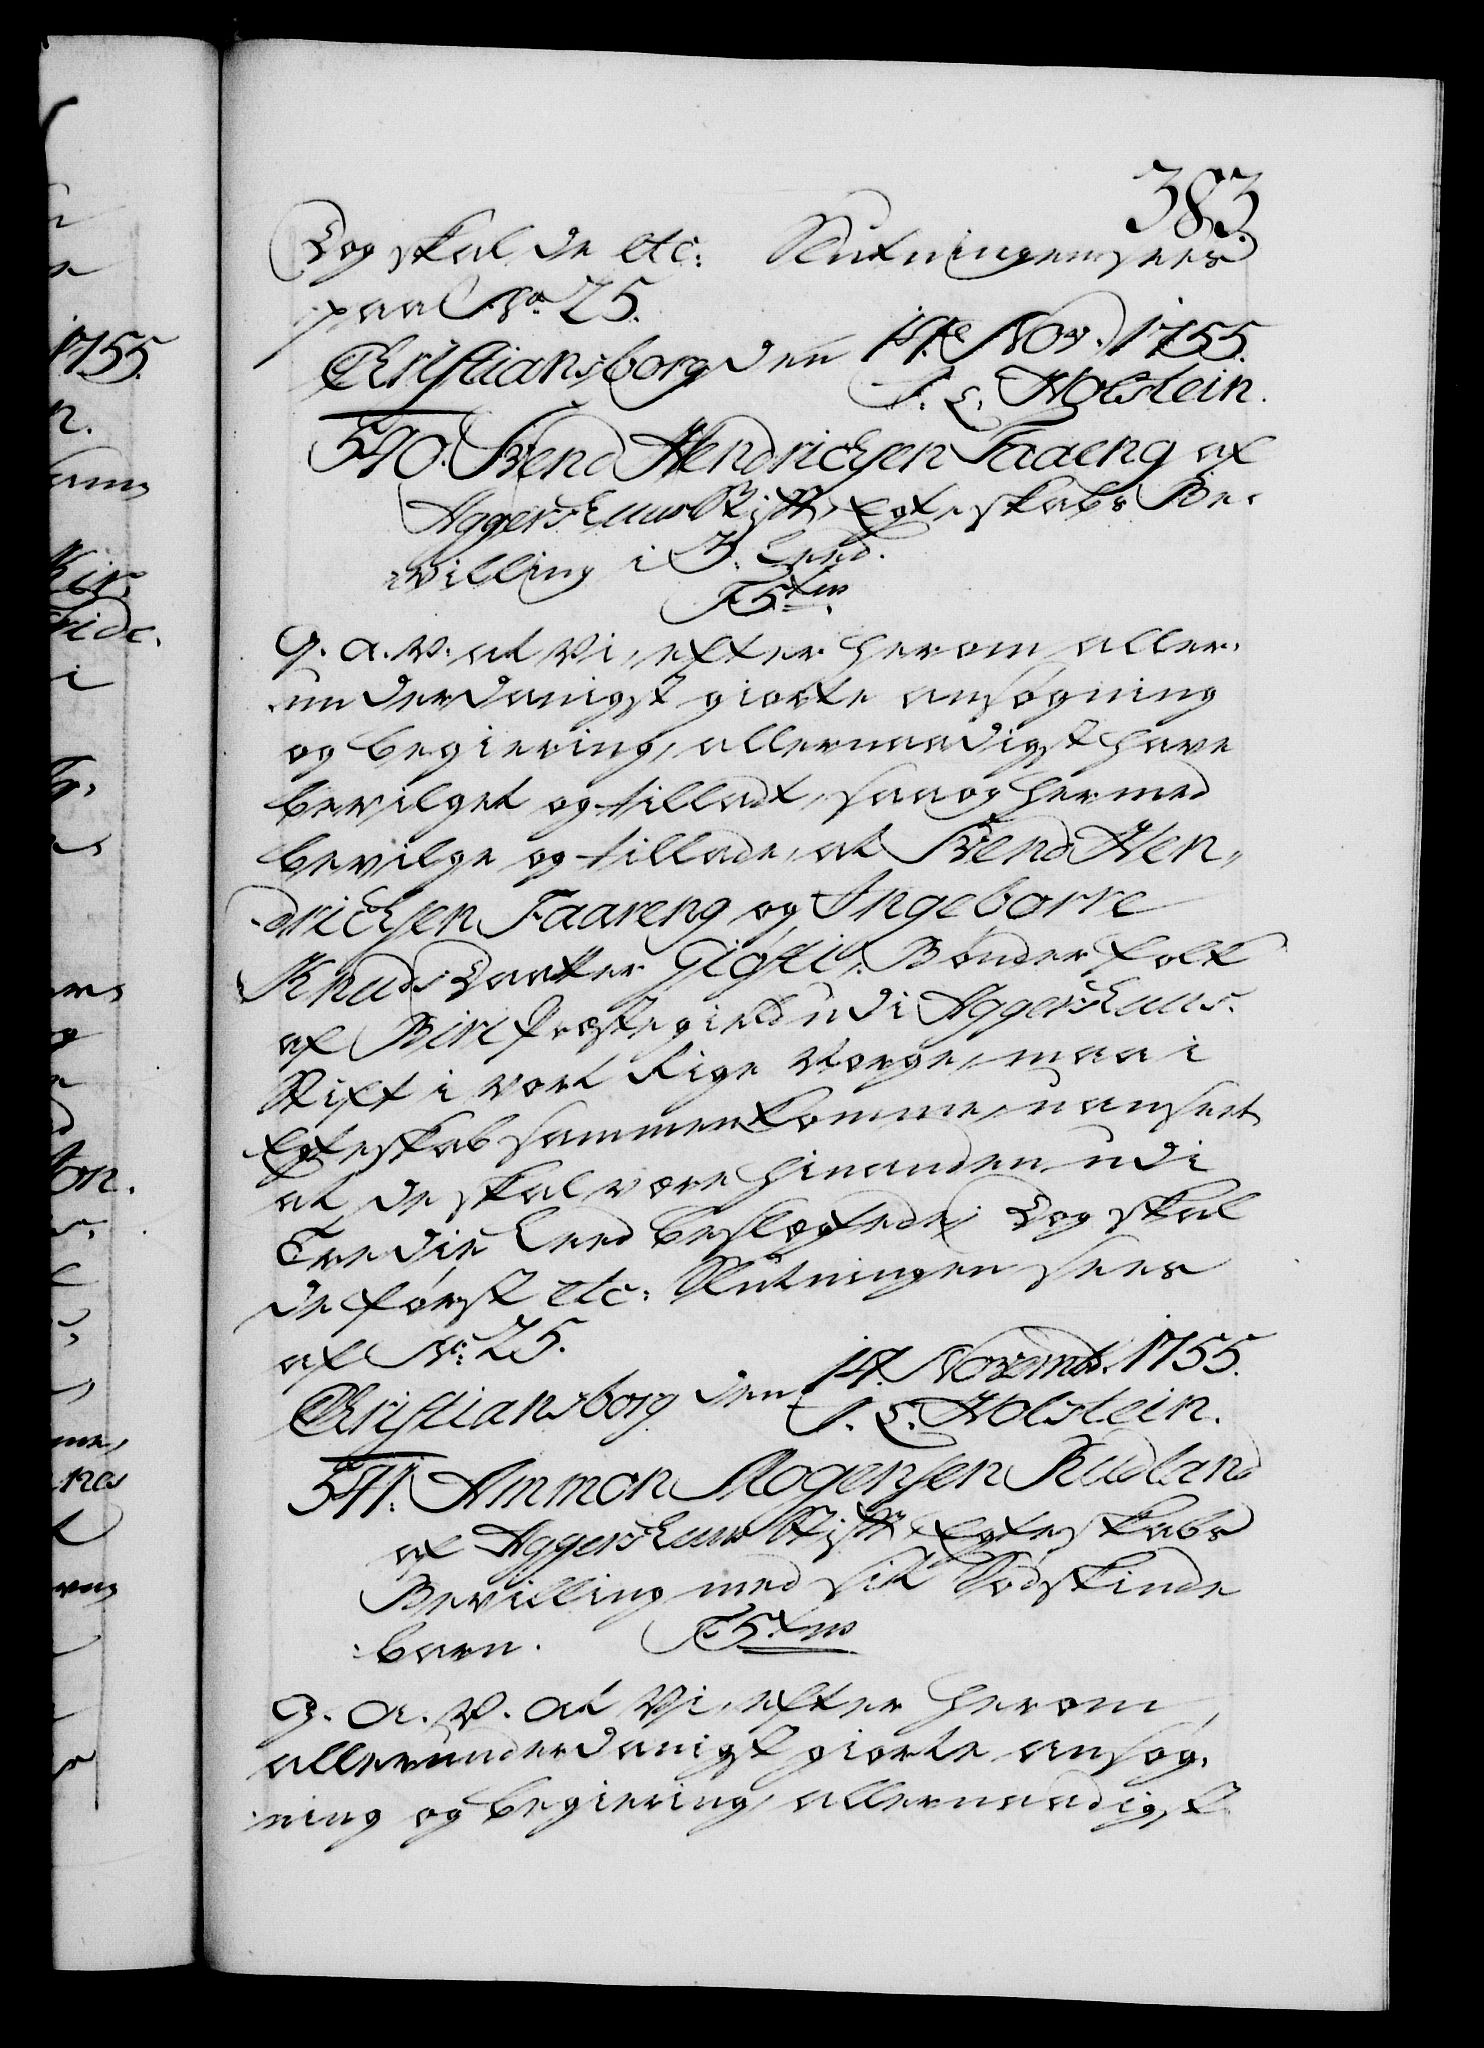 383.
Dog skal de etc: Slutningen sees
paa No 25.
Christiansborg den 14te Nov. 1755.
J. L. Holstein.
540. Svend Hendrichsen Faaeng af
Aggershuus Stift Egteskabs Be-
villing i 3. Leed.
G. a. V. at Vi, efter herom aller-
underdanigst giorte ansøgning
og begiering, allernaadigst have
bevilget og tilladt, saa og hermed
bevilge og tillade, at Svend Hen-
drichsen Faareng og Ingeborre
Knuds Daatter Giøsti, Bønder folk
af Biri Præstegield udi Aggershuus
Stift i vort Rige Norge, maa i
Egteskab sammenkomme, uanseet
at de skal være hinanden udi
Tredie Leed beslægtede; Dog skal
de først etc: Slutningen sees
af No: 25.
Christiansborg den 14. Novemb. 1755.
J. L. Holstein.
541. Ammon Mogensen Rudland
af Aggershuus Stift Egteskabs
Bevilling med sit Sødskinde
barn.
G. A. V. at Vi, efter herom
allerunderdanigst giorte ansøg-
ning og begiering, allernaadigst